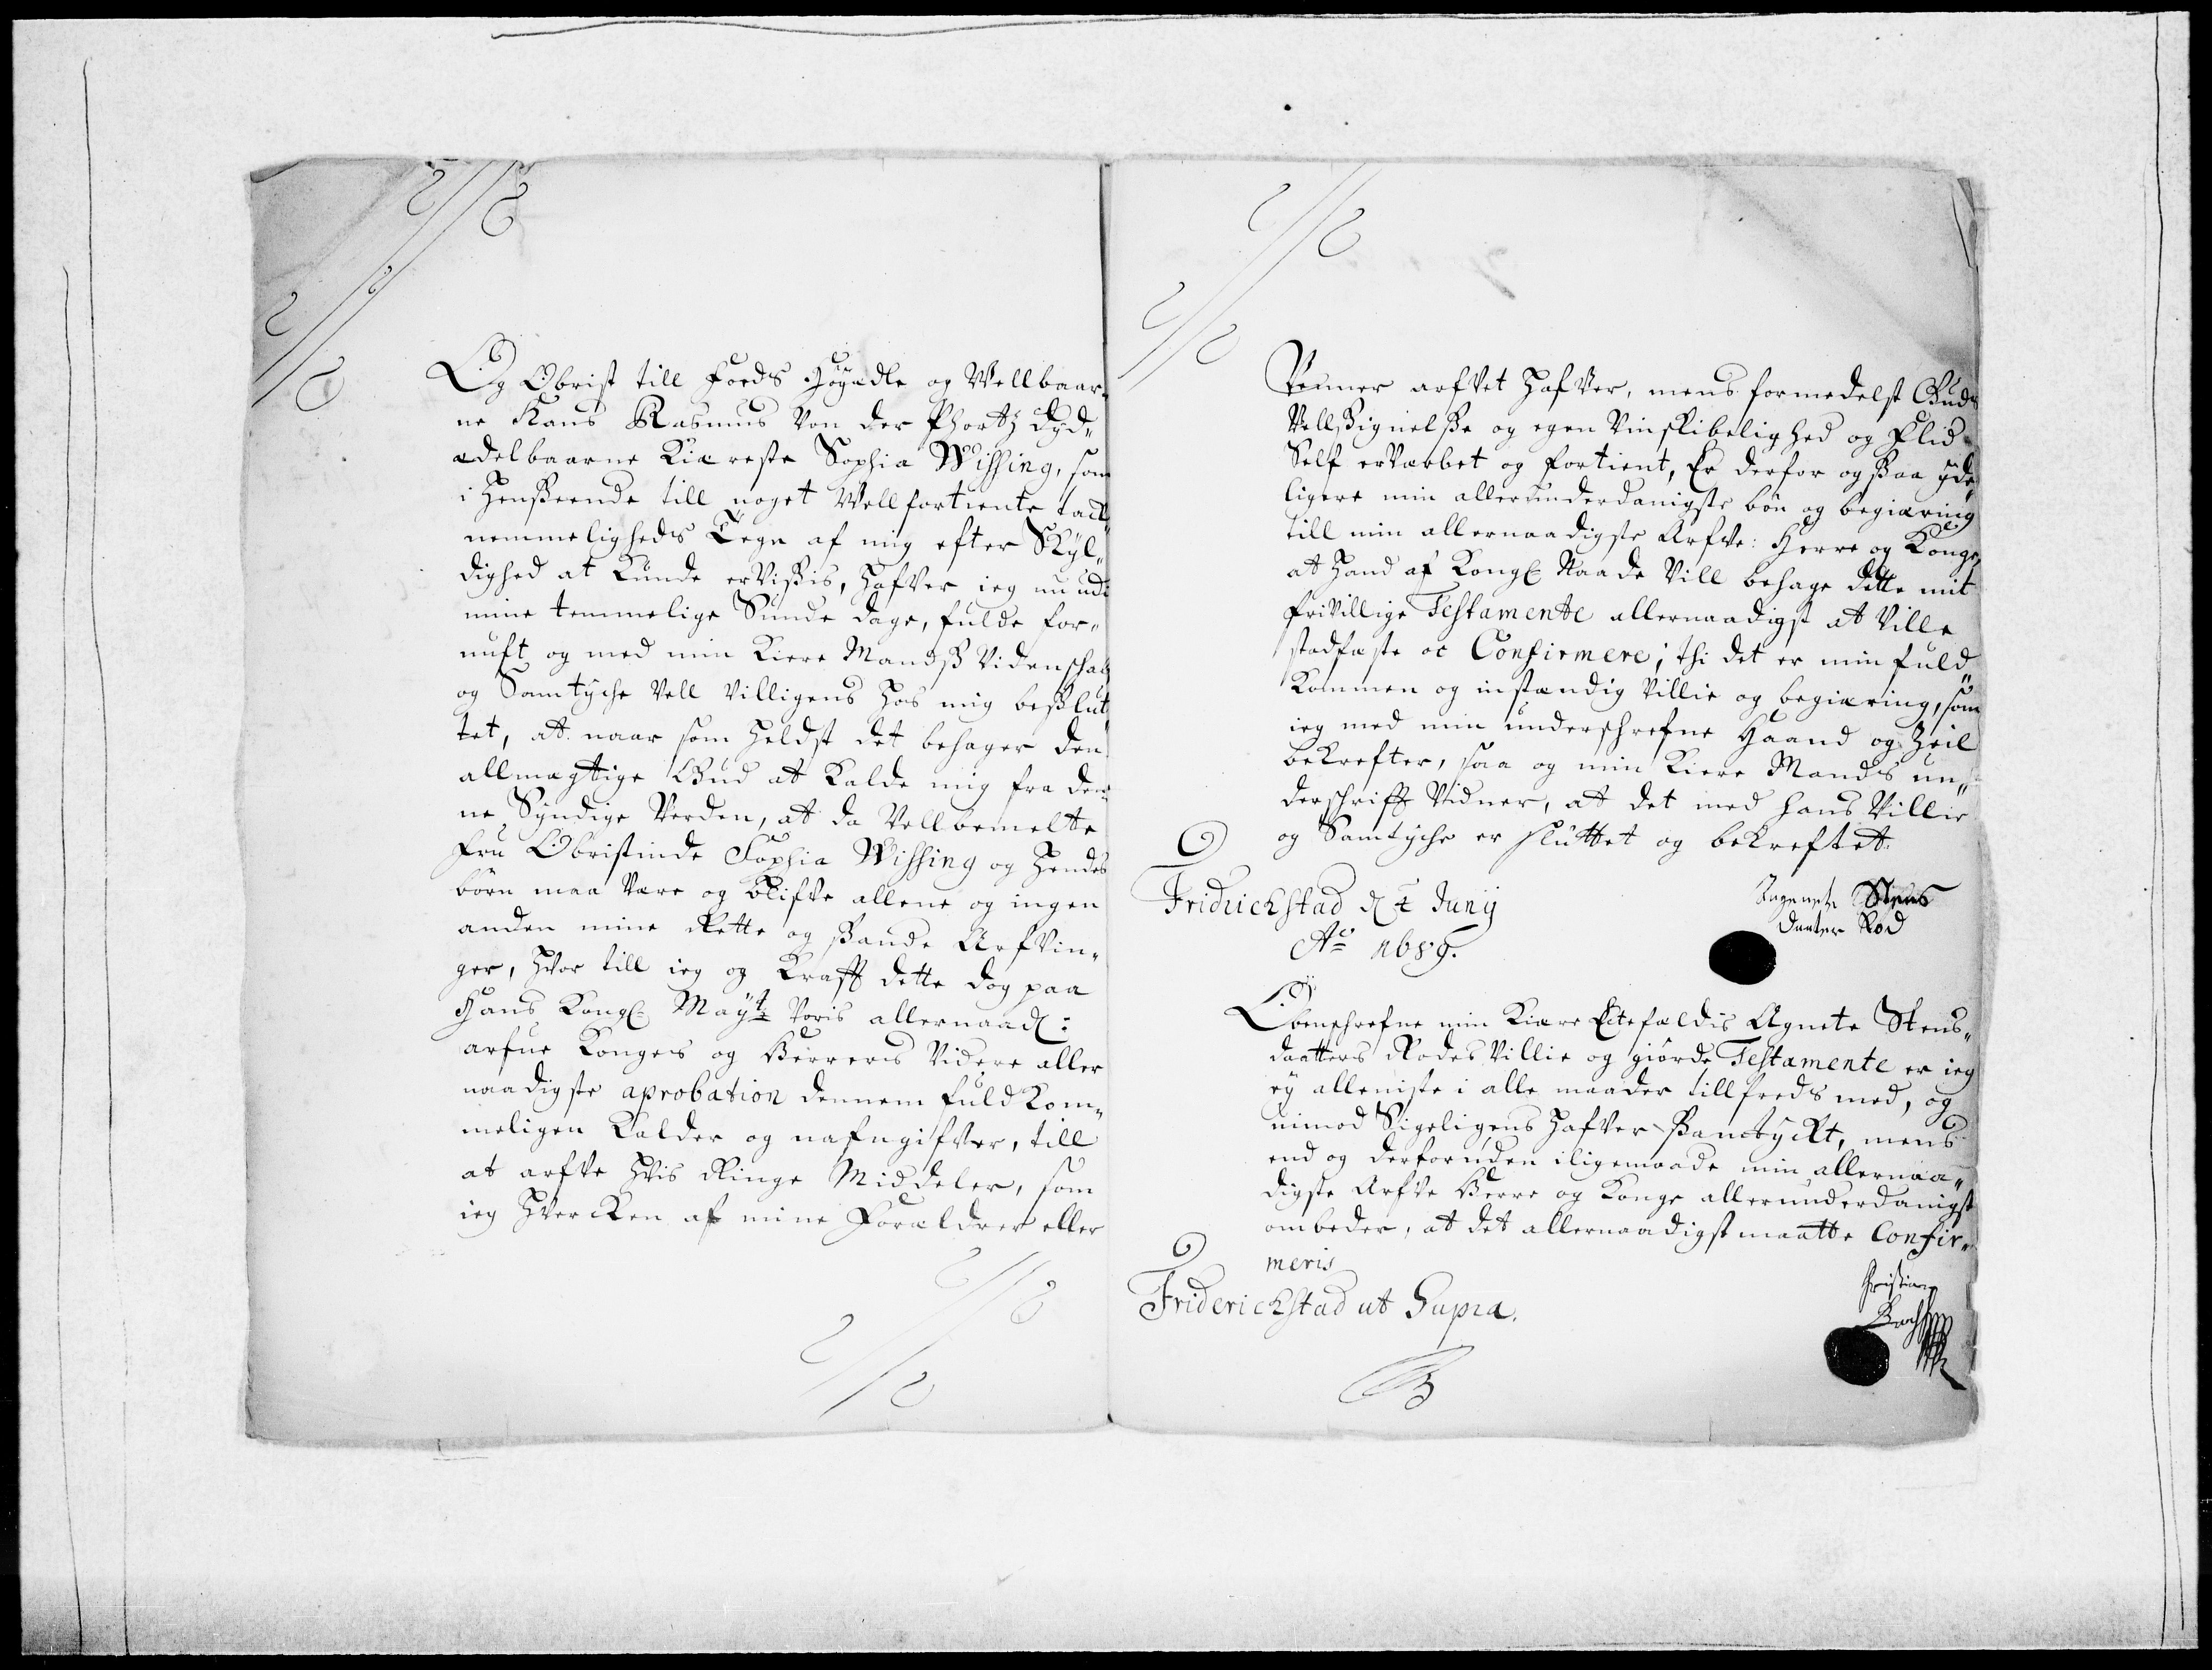 Og Obrist till Foeds Høyædle og Wellbaar„
ne Hans Rasmus Von der Phortz dyd„
ædelbaarne Kiæreste Sophia Wissing, som
i Henseende till noget Wellfortiente tack„
nemmeligheds Tegn af mig efter Skyl„
dighed at kunde ervissis, Hafver ieg nu udi
mine temmelige Sunde dage, fulde for„
nuft og med min Kiere Mandß Videnschab
og Samtyche Vell Villigens Hos mig beßlut„
tet, at naar som Heldst det behager den
allmægtige Gud at Kalde mig fra den„
ne Syndige Verden, at da Vellbemelte
Fru Obristinde Sophia Wissing og Hendes
börn maa Være og Blifve allene og ingen
anden mine Rette og ßande Arfvin„
ger, Hvor till ieg og Krafft dette dog paa
Hans Kongl: Mayts Voris allernaad:
arfue Konges og Herrens Videre aller
naadigste aprobation dennem fuldkom„
meligen Kalder og nafngifver, till
at arfve Hvis Ringe Middeler, som
ieg Hvercken af mine Forældrer eller
Venner arfvet Hafver, mens formedelst Guds
Vellßignelße og egen Vinskibelighed og Flid
Self erVærbet og fortient, Er derfor ogßaa yde„
ligere min allerunderdanigste bön og begiæring
till min allernaadigste Arfve: Herre og Konge,
at Hand af Kongl Naade Vill behage dette mit
friVillige Testamente allernaadigst at Ville
stadfæste oc Confirmere; thi det er min fuld„
Kommen og instændig Villie og begiæring, som
ieg med min underschrefne Haand og Zeil
bekrefter, saa og min Kiere Mands un„
derschrifft Vidner, at det med hans Villie
og Samtyche er sluttet og bekreftet.
Fridrichstad d Juny
Ao 1689.
Angnete Stens
Daater Rod
Obenschrefne min Kiære Ectefældis Agnete Stens„
daatters Rodes Villie og giörde Testamente er ieg
ey alleniste i alle maader tillfreds med, og
nimod Sigeligens Hafver ßamtyckt, mens
end og derforuden iligemaade min allernaa„
digste Arfve Herre og Konge allerunderdanigst
ombeder, at det allernaadigst maatte Confir„
meris
Friderichstad ut Supra.
Christian